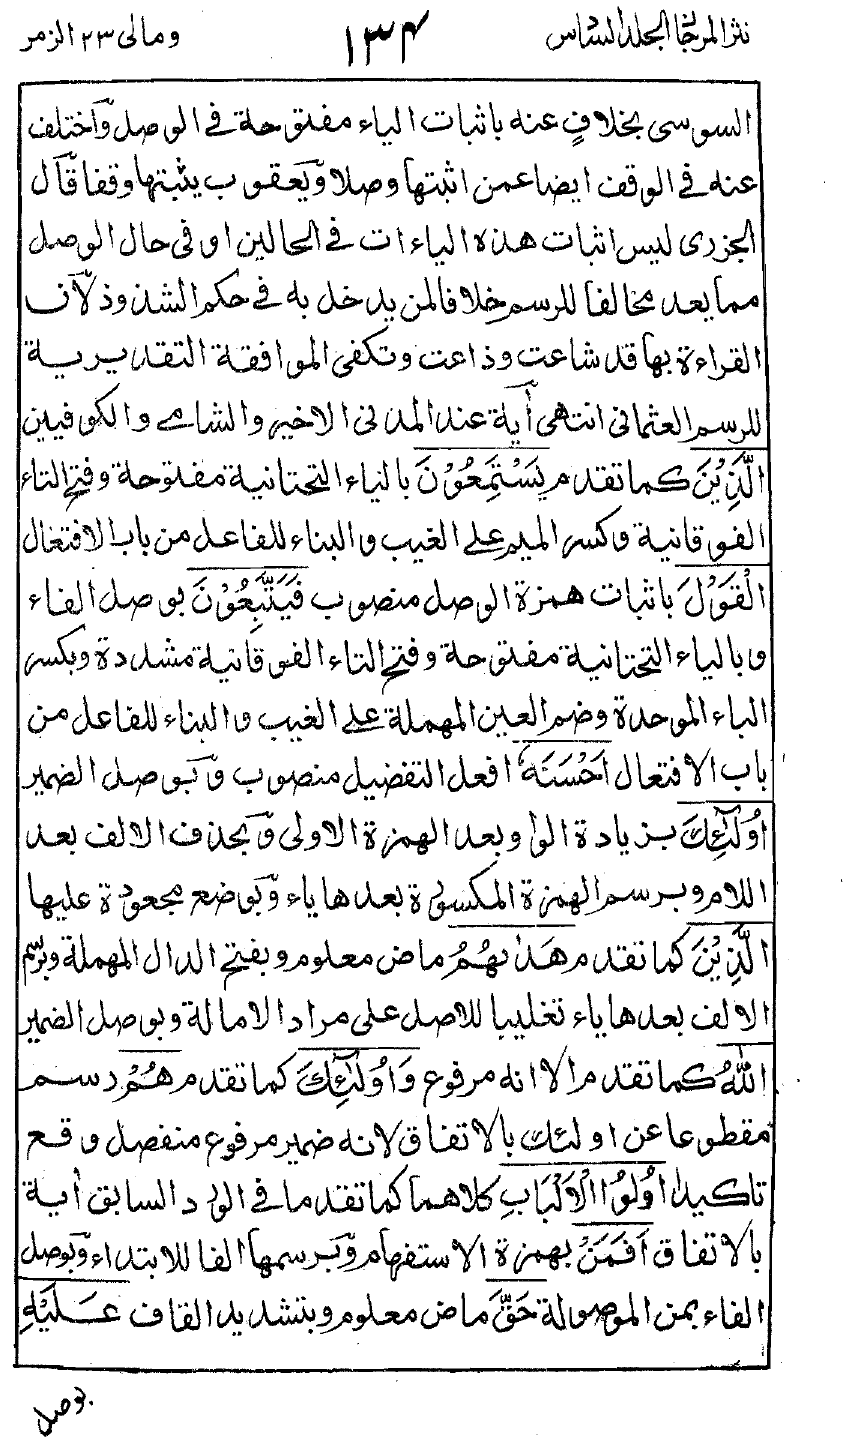 نثر المرجان المجلد السادس ١٣٤ ومالى ٢٣ الزمر
السوسى بخلافٍ عنه باثبات الياء مفتوحة فى الوصل وّاختلف
عنه فى الوقف ايضا عمن اثبتها وصلا وّيعقوب يثبتها وقفا قّال
الجزرى ليس اثبات هذه الياءات فى الحالين او فى حال الوصل
مما يعد مخالفا للرسم خلافا لمن يدخل به فى حكم الشذوذ لآن
القراءة بها قد شاعت وذاعت وتكفى الموافقة التقديرية
للرسم العثمانى انتهى أية عند المدنى الاخير والشامى والكوفيين
الَّذِيْنَ كما تقدم يَسْتَمِعُوْنَ بالياء التحتانية مفتوحة وفتح التاء
الفوقانية وكسر الميم على الغيب والبناء للفاعل من باب الافتعال
الْقَوْلَ باثبات همزة الوصل منصوب فَيَتَّبِعُوْنَ بوصل الفاء
وبالياء التحتانية مفتوحة وفتح التاء الفوقانية مشددة وبكسر
الباء الموحدة وضم العين المهملة على الغيب والبناء للفاعل من
باب الافتعال اَحْسَنَهٗ افعل التفضيل منصوب وّبوصل الضمير
اُولٰٓئِكَ بزيادة الواو بعد الهمزة الاولى وّبحذف الالف بعد
اللام وبرسم الهمزة المكسورة بعدها ياء وّبوضع مجعودة عليها
الَّذِيْنَ كما تقدم هَدٰىهُمُ ماض معلوم وبفتح الدال المهملة وبرسم
الالف بعدها ياء تغليبا للاصل على مراد الامالة وبوصل الضمير
اللّٰهُ كما تقدم الا انه مرفوع وَاُولٰٓئِكَ كما تقدم هُمْ رسم
مقطوعا عن اولئك بالاتفاق لانه ضمير مرفوع منفصل وقع
تاكيدا اُولُوا الْاَلْبَابِ كلاهما كما تقدما فى الورد السابق أية
بالاتفاق اَفَمَنْ بهمزة الاستفهام وّبرسمها الفا للابتداء وّبوصل
الفاء بمن الموصولة حَقَّ ماض معلوم وبتشديد القاف عَلَيْهِ
بوصل